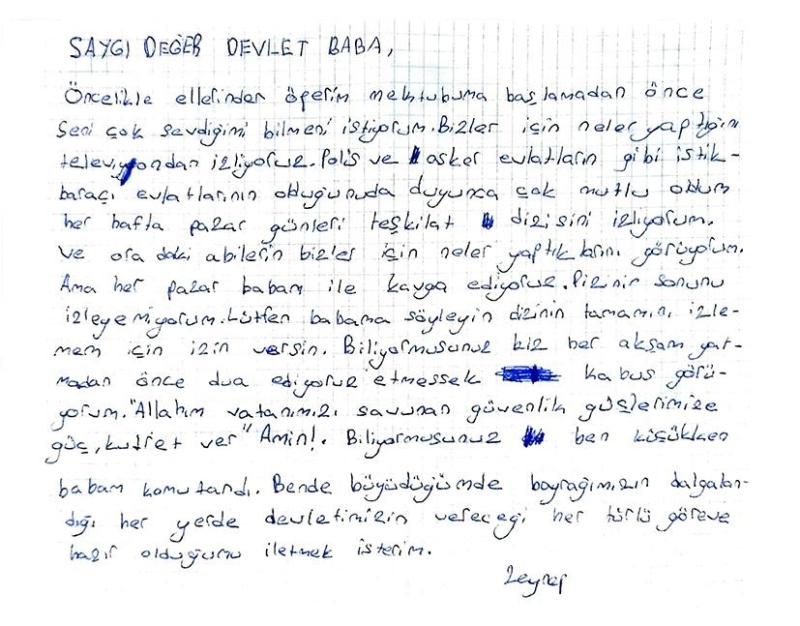 SAYGI DEĞER DEVLET BABA,
Öncelikle ellerinden öperim mektubuma başlamadan önce
Seni çok sevdiğimi bilmeni istiyorum. Bizler için neler yaptığını
televizyondan izliyoruz. Polis ve asker evlatların gibi istik-
baracı evlatlarının olduğunuda duyunca çok mutlu oldum
her hafta pazar günleri teşkilat dizisini izliyorum.
ve ora daki abilerin bizler için neler yaptıklarını görüyorum.
Ama her pazar babam ile kavga ediyoruz. Dizinin sonunu
izleyemiyorum. Lütfen babama söyleyin dizinin tamamını izle-
mem için izin versin. Biliyormusunuz biz her akşam yat-
madan önce dua ediyoruz etmessek kabus görü-
yorum. "Allahım vatanımızı savunan güvenlik güçlerimize
güç, kutret ver" Amin!. Biliyormusunuz ben küçükken
babam komutandı. Bende büyüdüğümde bayrağımızın dalgalan-
dığı her yerde devletimizin vereceği her türlü göreve
hazır olduğumu iletmek isterim.
Zeynep